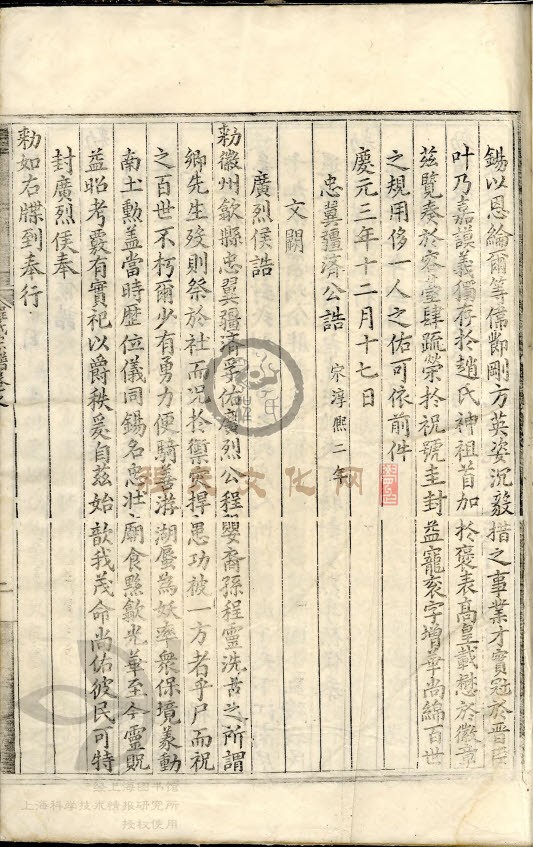 錫以恩綸爾等儒鄰剛方英姿沉毅措之事業才實冠於晋臣
叶乃嘉謨義獨存於趙氏神祖首加於褒表高皇載懋於徽章
兹覽奏於容臺肆疏榮於祝號圭封益寵衮字增華尚綿百世
之規用侈一人之佑可依前件
慶元三年十二月十七日
忠翼疆濟公誥 宋淳熙二年
文闕
廣烈侯誥
勑徽州歙縣忠翼疆濟孚佑廣烈公程嬰裔孫程靈洗古之所謂
鄉先生殁則祭於社而况於禦灾捍患功被一方者乎尸而祝
之百世不朽爾少有勇力便騎善游湖蜃為妖率衆保境義動
南土勲盖當時歴位儀同錫名忠壯廟食黟歙光華至今靈貺
益昭考覈有實祀以爵秩爰自茲始歆我茂命尚佑彼民可特
封廣烈侯奉
勑如右牒到奉行
程氏宗譜卷之
上海圖書館
上海科学技术情报研究所
授权使用